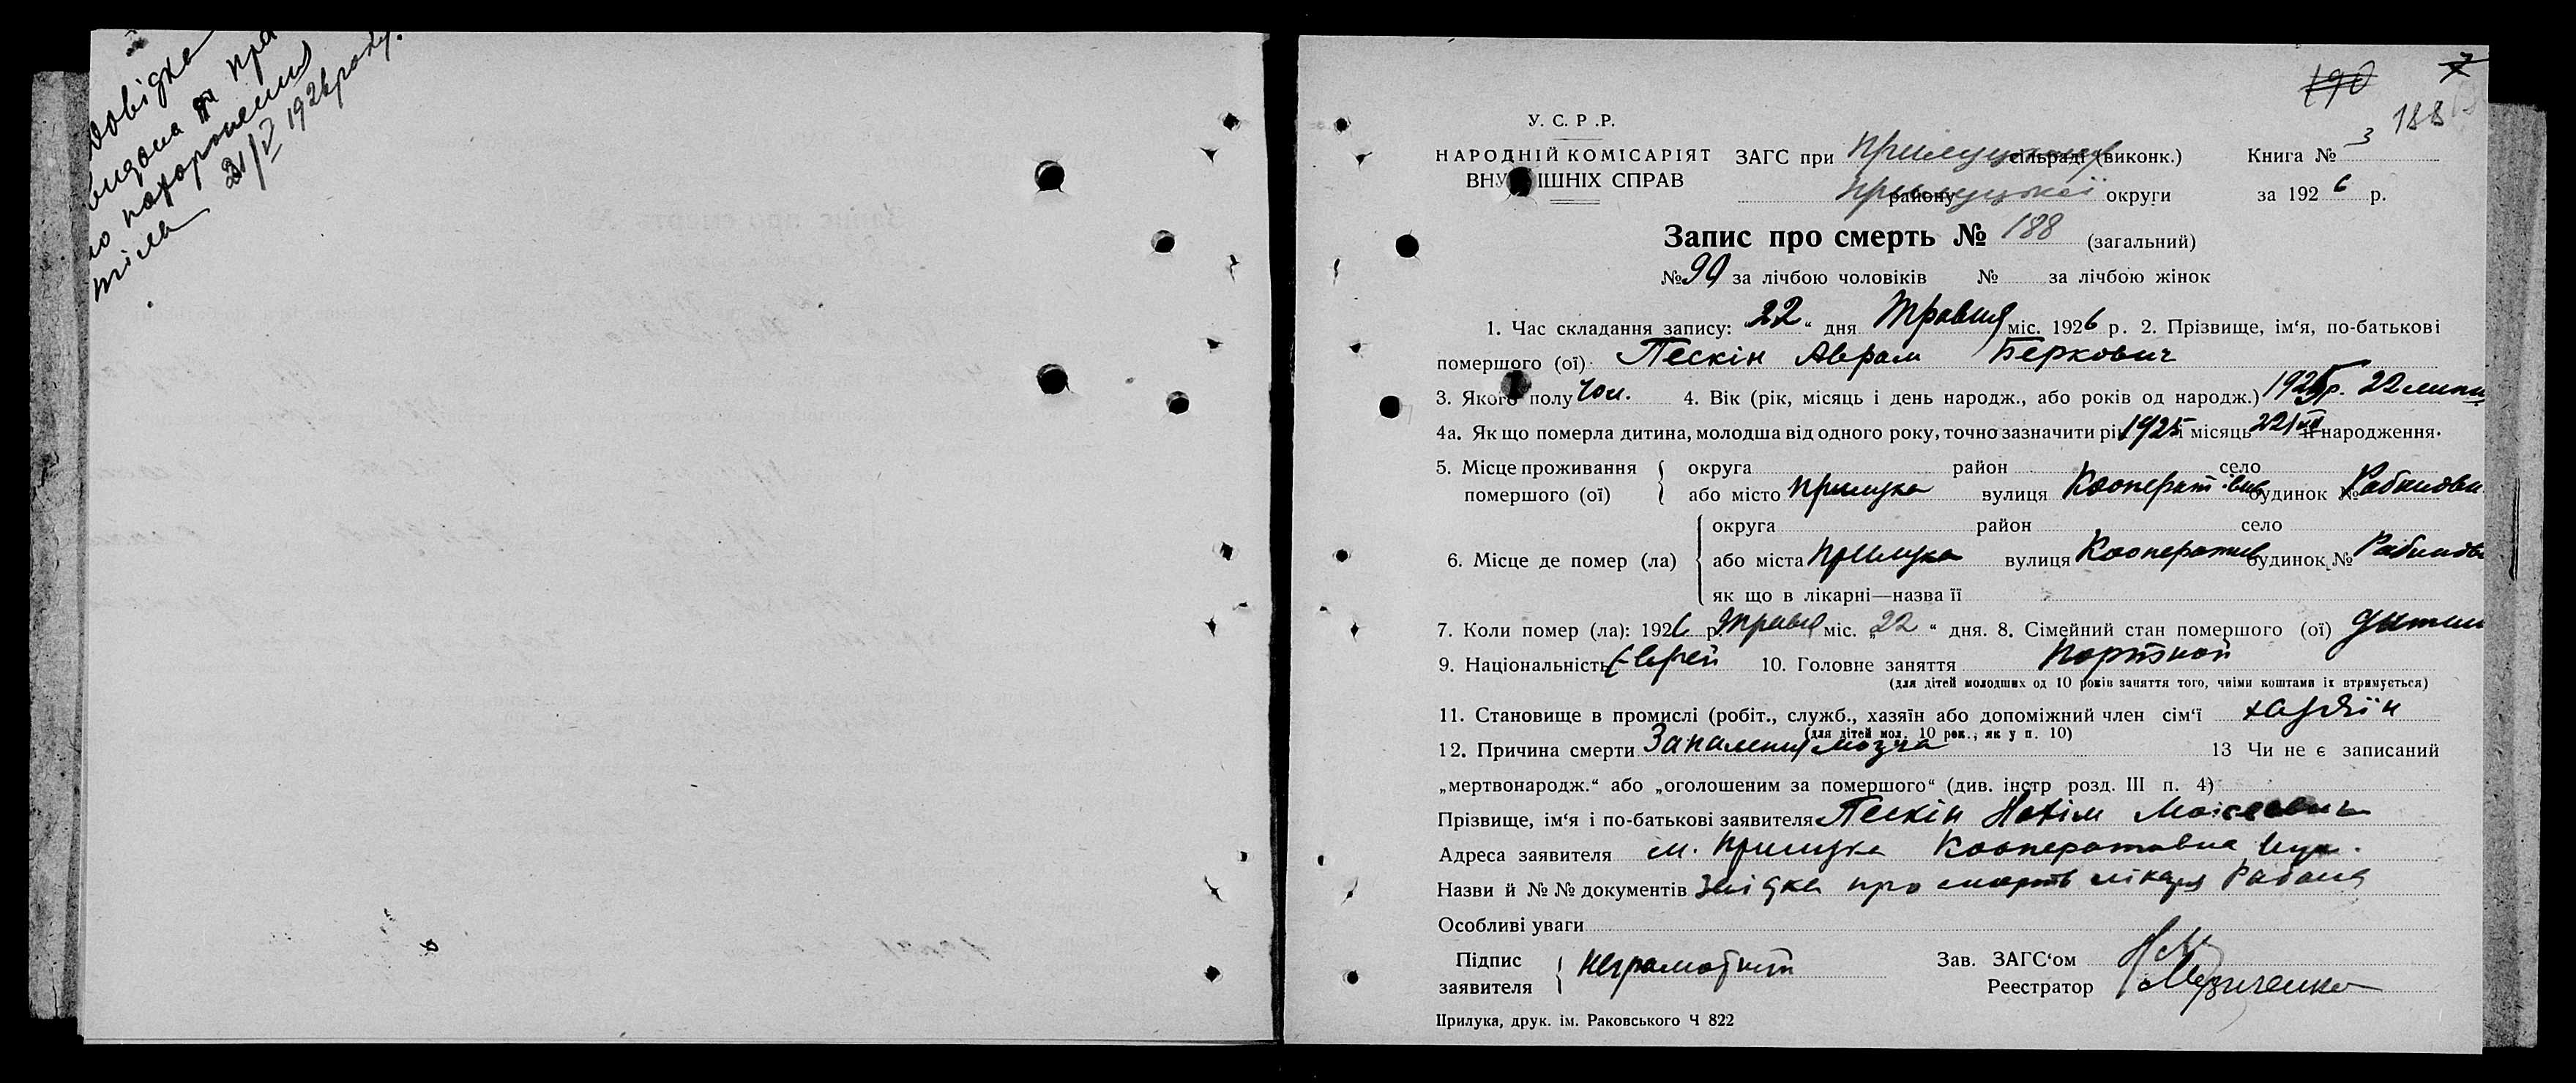 Довідка
видана на пра
во похоронення
тіла 21/V 1926 року.
190
7
188
У. С. Р .Р.
НАРОДНІЙ КОМІСАРІЯТ
ВНУ ІШНІХ СПРАВ
ЗАГС при сільраді (виконк.)
району Прилуцької округи
Книга № 3
за 1926 р.
Запис про смерть № 188 (загальний)
№ 90 за лічбою чоловіків № за лічбою жінок
1. Час складання запису: "22" дня Травня міс. 1926 р. 2. Прізвище, ім'я, по-батькові
помершого (ої) Пескін Аврам Беркович
3. Якого полу чол. 4. Вік (рік, місяць і день народж., або років од народж.) 1925 р. 22 липн
4а. Як що померла дитина, молодша від одного року, точно зазначити рік 1925 і місяць 22/VII її народження.
5. Місце проживання помершого (ої) округа район село
або місто Прилука вулиця Кооператівн будинок №
6. Місце де помер (ла) округа район село
або міста Прилука вулиця Кооператив будинок №
як що в лікарні—назва її
7. Коли помер (ла): 1926 р. Травня міс. „22" дня. 8. Сімейний стан помершого (ої) дитин
9. Національність Єврей 10. Головне заняття Портной
(для дітей молодших од 10 років заняття того, чиїми коштами їх втримується)
11. Становище в промислі (робіт., служб., хазяїн або допоміжний член сім'ї хазяїн
(для дітей мол. 10 рок., як у п. 10)
12. Причина смерти Запалення мозга 13 Чи не є записаний
„мертвонародж." або „оголошеним за помершого" (див. інстр розд. III п. 4)
Прізвище, ім'я і по-батькові заявителя Пескін Нохім Моісеевич
Адреса заявителя м. Прилука Кооперативна вул.
Назви й №№ документів про смерть лікаря
Особливі уваги
Підпис заявителя неграмотний
Зав. ЗАГС'ом
Реестратор
Прилука, друк. ім. Раковського Ч 822